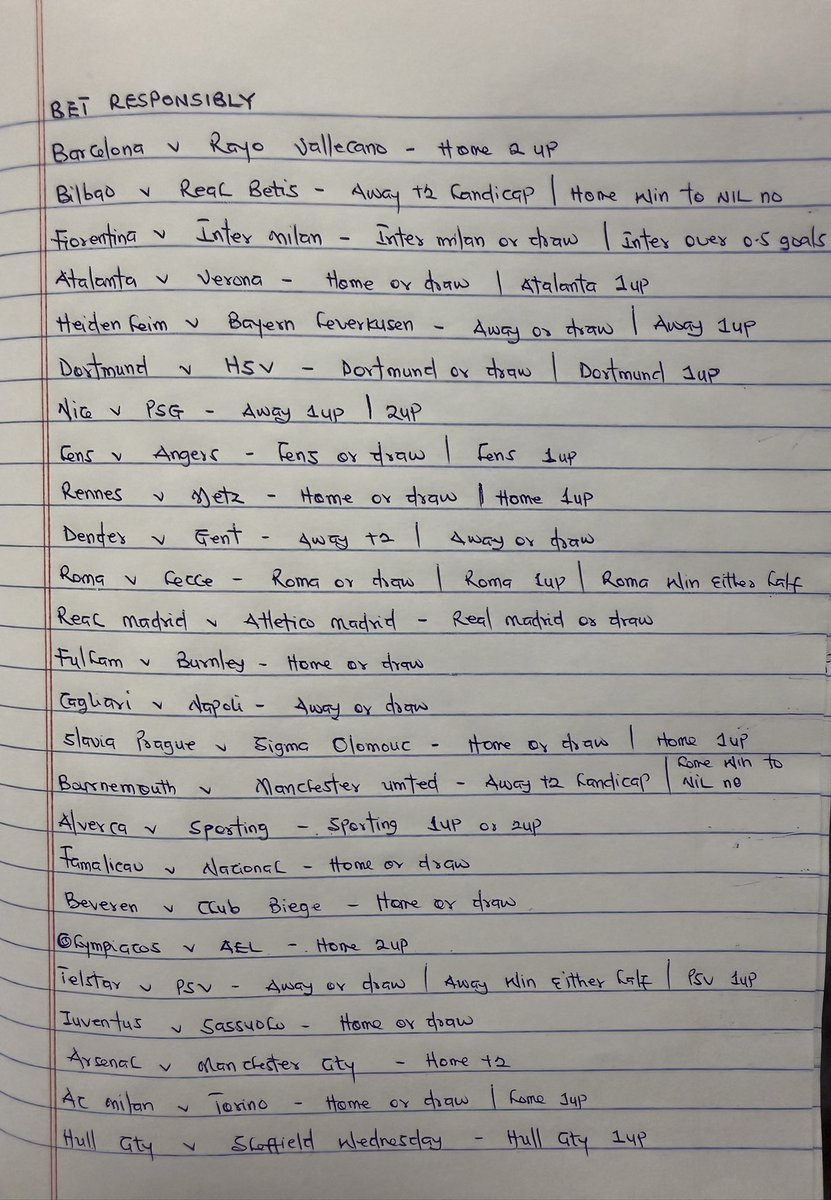 BET RESPONSIBLY
Barcelona v Rayo Vallecano - Home 2 UP
Bilbao v Real Betis - Away +2 handicap | Home Win to NIL no
Fiorentina v Inter milan - Inter milan or draw | Inter over 0.5 goals
Atalanta v Verona - Home or draw | Atalanta 1up
Heidenheim v Bayern Leverkusen - Away or draw | Away 1up
Dortmund v HSV - Dortmund or draw | Dortmund 1up
Nice v PSG - Away 1up | 2up
Lens v Angers - Lens or draw | Lens 1up
Rennes v Metz - Home or draw | Home 1up
Dender v Gent - Away +2 | Away or draw
Roma v Lecce - Roma or draw | Roma 1up | Roma Win Either half
Real madrid v Atletico madrid - Real madrid or draw
Fulham v Burnley - Home or draw
Cagliari v Napoli - Away or draw
Slavia Prague v Sigma Olomouc - Home or draw | Home 1up
Bournemouth v Manchester united - Away +2 handicap | home Win to NIL no
Alverca v Sporting - Sporting 1up or 2up
Famalicao v Nacional - Home or draw
Beveren v Club Biege - Home or draw
Olympiacos v AEL - Home 2up
Telstar v PSV - Away or draw | Away Win Either half | PSV 1up
Juventus v Sassuolo - Home or draw
Arsenal v Manchester City - Home +2
Ac milan v Torino - Home or draw | home 1up
Hull City v Sheffield Wednesday - Hull City 1up